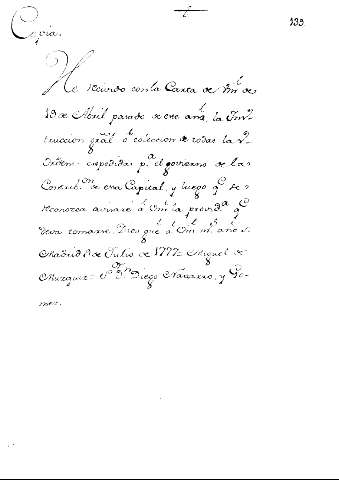 133
Copia.
He recivido con la Carta de Vm.d de
18 de Abril pasado de este año, la Ins-
truccion gral ó coleccion de todas las
Ordenes expedidas p.a el govierno de las
Contrib.nes de esa Capital, y luego q.e se
reconozca avisaré á Vm. la provid.a q.e
deva tomarse. Dios gue á Vm. m.s años.
Madrid 8 de Julio de 1777 = Miguel de
Muzquiz = S.or D.n Diego Navarro, y Go-
mez.